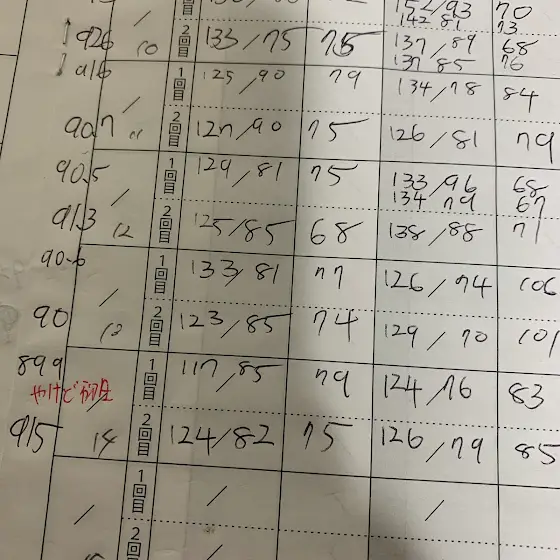 152/93 70
142 81 73
926 10 2回目 133/75 75 137/89 68
137/85 76
916 / 1回目 125/90 79 134/78 84
90.7 11 2回目 127/90 75 126/81 79
90.5 / 1回目 129/81 75 133/96 68
134/79 67
913 12 2回目 125/85 68 138/88 71
90.6 / 1回目 133/81 77 126/74 106
90 13 2回目 123/85 74 129/70 101
899 / 1回目 117/85 79 124/76 83
やけど
915 14 2回目 124/82 75 126/79 85
/ 1回目 / /
2回目 /